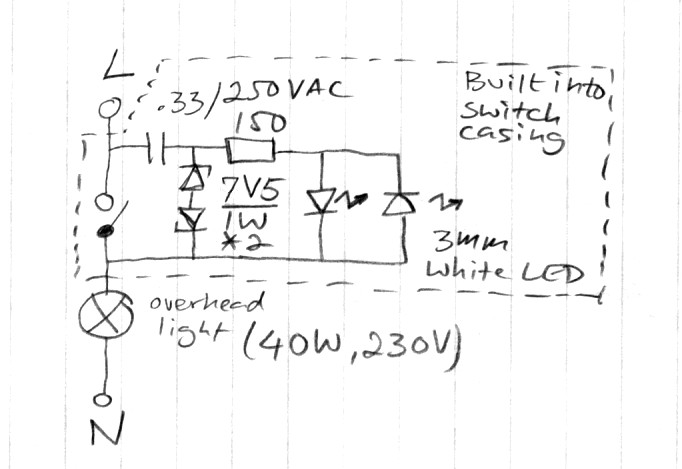 L
.33/250VAC
150
Built into
switch
casing
7V5
1W
*2
3mm
white LED
overhead
light (40W, 230V)
N